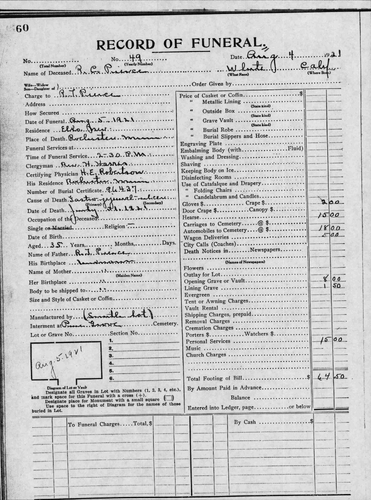 60
RECORD OF FUNERAL
No. No. 49 Date Aug 4 1921
(Total Number) (Yearly Number)
Name of Deceased R. C. Pierce White Calif
(What Race) (Where Born)
Charge to R. T. Pierce Order Given by
Address
How Secured
Date of Funeral Aug-5-1921
Residence
Place of Death Rochester Minn
Funeral Services at
Time of Funeral Service 2-30 P.M.
Clergyman Rev. H. Harris
Certifying Physician H. E. Robertson
His Residence Rochester Minn
Number of Burial Certificate 96427
Cause of Death
Date of Death July 29, 1921
Occupation of the Deceased
Single or Married Religion
Date of Birth
Aged 35 Years Months Days
Name of Father R. T. Pierce
His Birthplace
Name of Mother "
(Maiden Name)
Her Birthplace "
Body to be shipped to "
Size and Style of Casket or Coffin
Manufactured by (Smith lot)
Interment at Pine Grove Cemetery.
Lot or Grave No. Section No.
1.
2.
3.
4.
5.
6.
7.
8.
Aug-5-1921
Diagram of Lot or Vault
Designate all Graves in Lot with Numbers (1, 2, 3, 4, etc.), and mark space for this Funeral with a cross (+).
Designate place for Monument with a small square
Use space to right of Diagram for the names of those buried in Lot.
Price of Casket or Coffin $
" Metallic Lining
" Outside Box (State kind)
" Grave Vault (State kind)
" Burial Robe (State kind)
" Burial Slippers and Hose
Engraving Plate
Embalming Body (with Fluid)
Washing and Dressing
Shaving
Keeping Body on Ice
Disinfecting Rooms
Use of Catafalque and Drapery
" Folding Chairs
" Candelabrum and Candles
Gloves $ Crape $ 3 00
Door Crape $ Canopy $
Hearse 15 00
Carriages to Cemetery @ $
Automobiles to Cemetery @ $ 18 00
Wagon Deliveries 5 00
City Calls (Coaches)
Death Notices in Newspapers
(Names of Newspapers)
Flowers
Outlay for Lot
Opening Grave or Vault 8 00
Lining Grave 1 50
Evergreen
Tent or Awning Charges
Vault Rental
Shipping Charges, prepaid
Removal Charges
Cremation Charges
Porters $ Watchers $
Personal Services 15 00
Music
Church Charges
Total Footing of Bill $ 64 50
By Amount Paid in Advance
Balance
Entered into Ledger, page or below
To Funeral Charges Total $ By Cash $